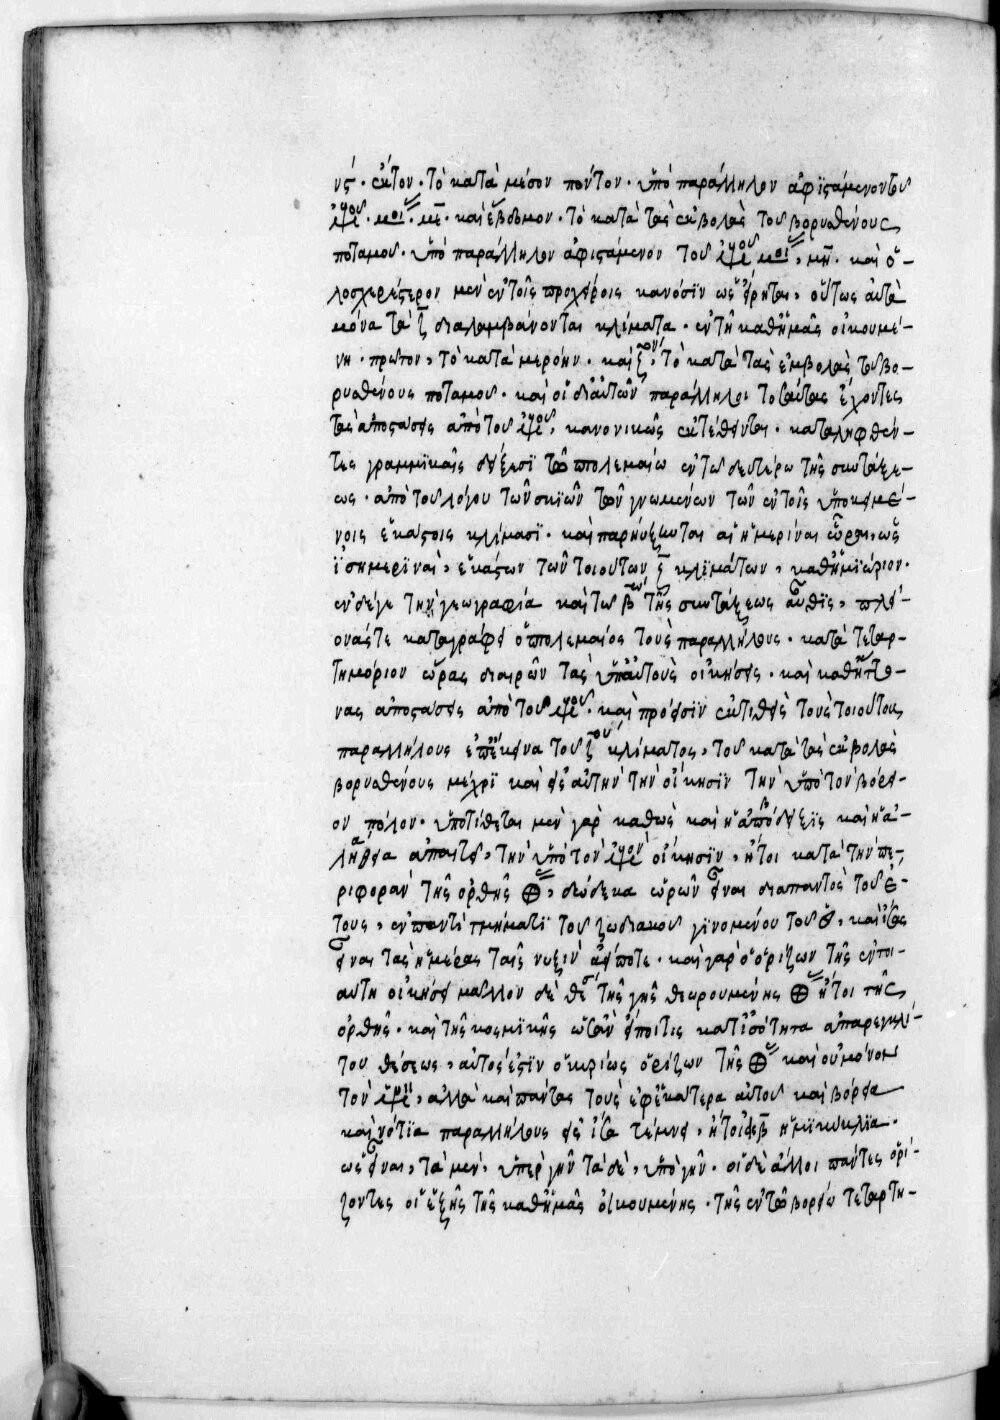 νς΄· ἕκτον· τὸ κατὰ μέσον πόντον· ὑπὸ παράλληλον ἀφιστάμενον τοῦ
μοι· με· καὶ ἕβδομον· τὸ κατὰ τὰς ἐκβολὰς τοῦ βορυσθένους
ποταμοῦ· ὑπὸ παράλληλον ἀφιστάμενον τοῦ μοι, μη· καὶ ὁ-
λοσχερέστερον μὲν ἐν τοῖς προχείροις κανόσϊν ὡς εἴρηται, οὕτως αὐτὰ
μόνα τὰ ζ διαλαμβάνονται κλίματα· ἐν τῆ καθ' ἡμᾶς οἰκουμέ-
νη· πρῶτον, τὸ κατὰ μερόην· καὶ ζον, τὸ κατὰ τὰς ἐμβολὰς τοῦ βο-
ρυσθένους ποταμοῦ· καὶ οἱ δι' αὐτῶν παράλληλοι τοσαύτας ἔχοντες
τὰς ἀποστάσεις ἀπὸ τοῦ κανονικῶς ἐκτέθεινται· καταληφθέν-
τες γραμμϊκαῖς δείξεσϊ τῶ πτολεμαίω ἐν τῶ δευτέρω τῆς συντάξε-
ως· ἀπὸ τοῦ λόγου τῶν σκϊῶν τῶν γνωμόνων τῶν ἐν τοῖς ὑποκειμέ-
νοις ἑκάστοις κλίμασϊ· καὶ παρηύξηνται αἱ ἡμεριναὶ ὧραι, ὡς
ϊσημερϊναὶ, ἑκάστων τῶν τοιούτων ζ κλϊμάτων, καθ' ἡμϊώριον·
ἐν δέ γε τῆ γεωγραφία καὶ τῶ βω τῆς συντάξεως αὖθϊς, πλεί-
ονάς τε καταγράφει ὁ πτολεμαῖος τοὺς παραλλήλους· κατὰ τεταρ-
τημόριον ὥρας διαιρῶν τὰς ὑπ' αὐτοὺς οἰκήσεις· καὶ καθ'
νας ἀποστάσεις ἀπὸ τοῦ καὶ πρόεισϊν ἐκτιθεὶς τοὺς τοιούτους
παραλλήλους ἐπέκεινα τοῦ ζου κλίματος, τοῦ κατὰ τὰς ἐκβολὰς
βορυσθένους μέχρϊ καὶ εἰς αὐτὴν τὴν οἴκησϊν τὴν ὑπὸ τὸν βόρει-
ον πόλον· ὑποτίθεται μὲν γὰρ καθὼς καὶ ἡ ἀπόδειξϊς καὶ ἡ ἀ-
λήθεια ἀπαιτεῖ, τὴν ὑπὸ τὸν οἴκησϊν, ἤτοι κατὰ τὴν πε-
ριφορὰν τῆς ὀρθῆς ⊕, δώδεκα ὡρῶν εἶναι διαπαντὸς τοῦ ἔ-
τους, ἐν παντὶ τμήματϊ τοῦ ζωδιακοῦ γϊνομένου τοῦ καὶ ἴσας
εἶναι τὰς ἡμέρας ταῖς νυξὶν ἀείποτε· καὶ γὰρ ὁ ὁρίζων τῆς ἐν τοι-
αύτη οἰκήσει μᾶλλον δὲ τῆς γῆς θεωρουμένης ⊕ ἤτοι τῆς
ὀρθῆς· καὶ τῆς κοσμϊκῆς ὡς ἂν εἴποι τις κατ' ἰσότητα ἀπαρεγκλί-
του θέσεως, αὐτός ἐστϊν ὁ κυρίως ὁρίζων τῆς ⊕ καὶ οὐ μόνον
τὸν ἀλλὰ καὶ πάντας τοὺς ἐφ' ἑκάτερα αὐτοῦ καὶ βόρεια
καὶ νότϊα παραλλήλους εἰς ἴσα τέμνει, ἤτοι εἰς β ἡμϊκύκλϊα·
ὡς εἶναι, τὰ μὲν, ὑπὲρ γῆν τὰ δὲ, ὑπὸ γῆν· οἱ δὲ ἄλλοι πάντες ὁρί-
ζοντες οἱ ἑξῆς τῆς καθ' ἡμᾶς οἰκουμένης· τῆς ἐν τῶ βορείω τεταρτη-